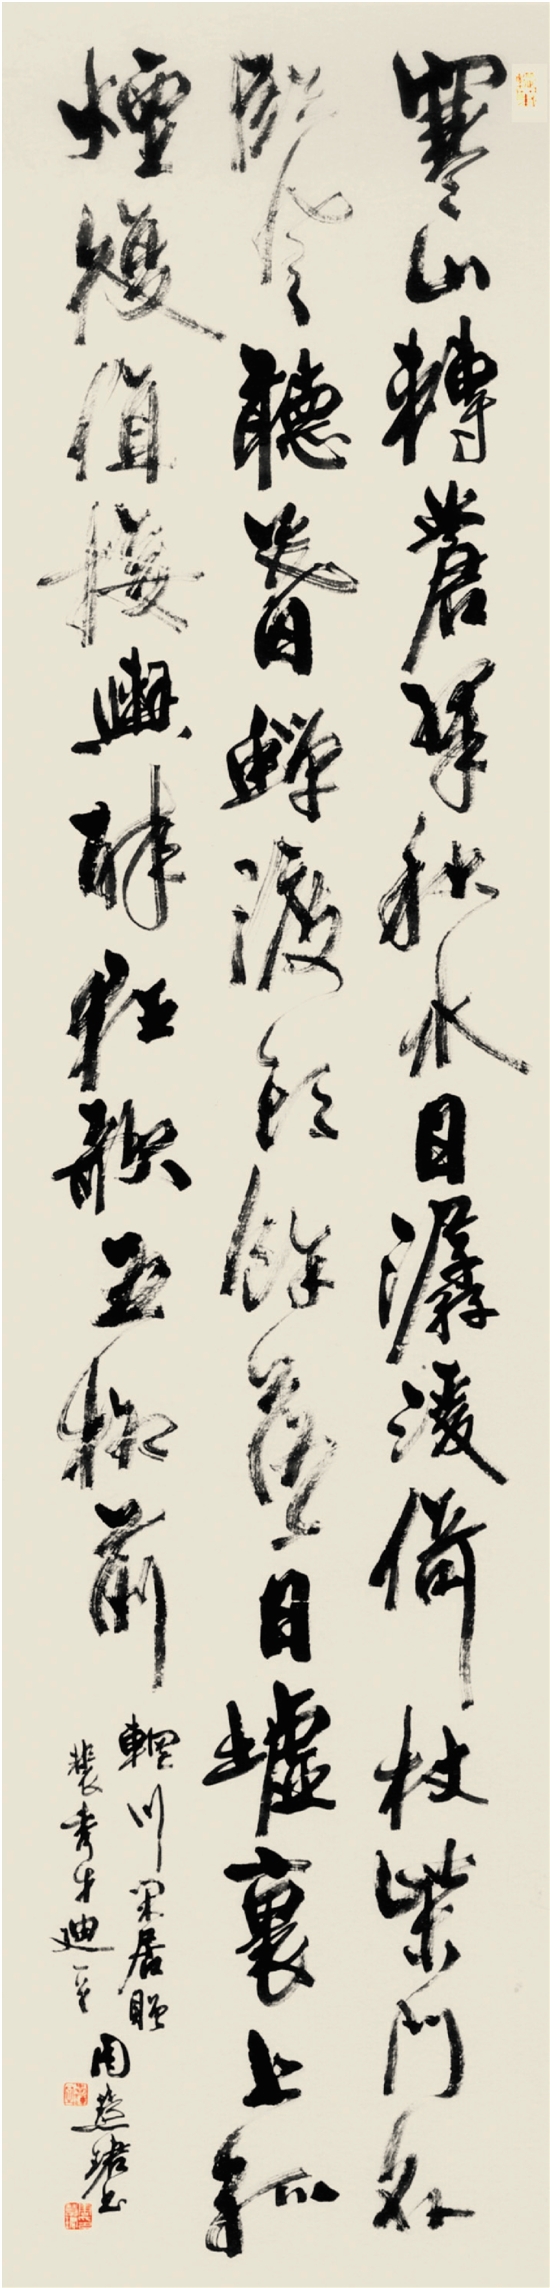 寒山轉蒼翠秋水日潺湲倚杖柴門外
臨風聽暮蟬渡頭餘落日墟裏上孤
煙復值接輿醉狂歌五柳前
輞川閑居贈
裴秀才迪一首
周慧珺书